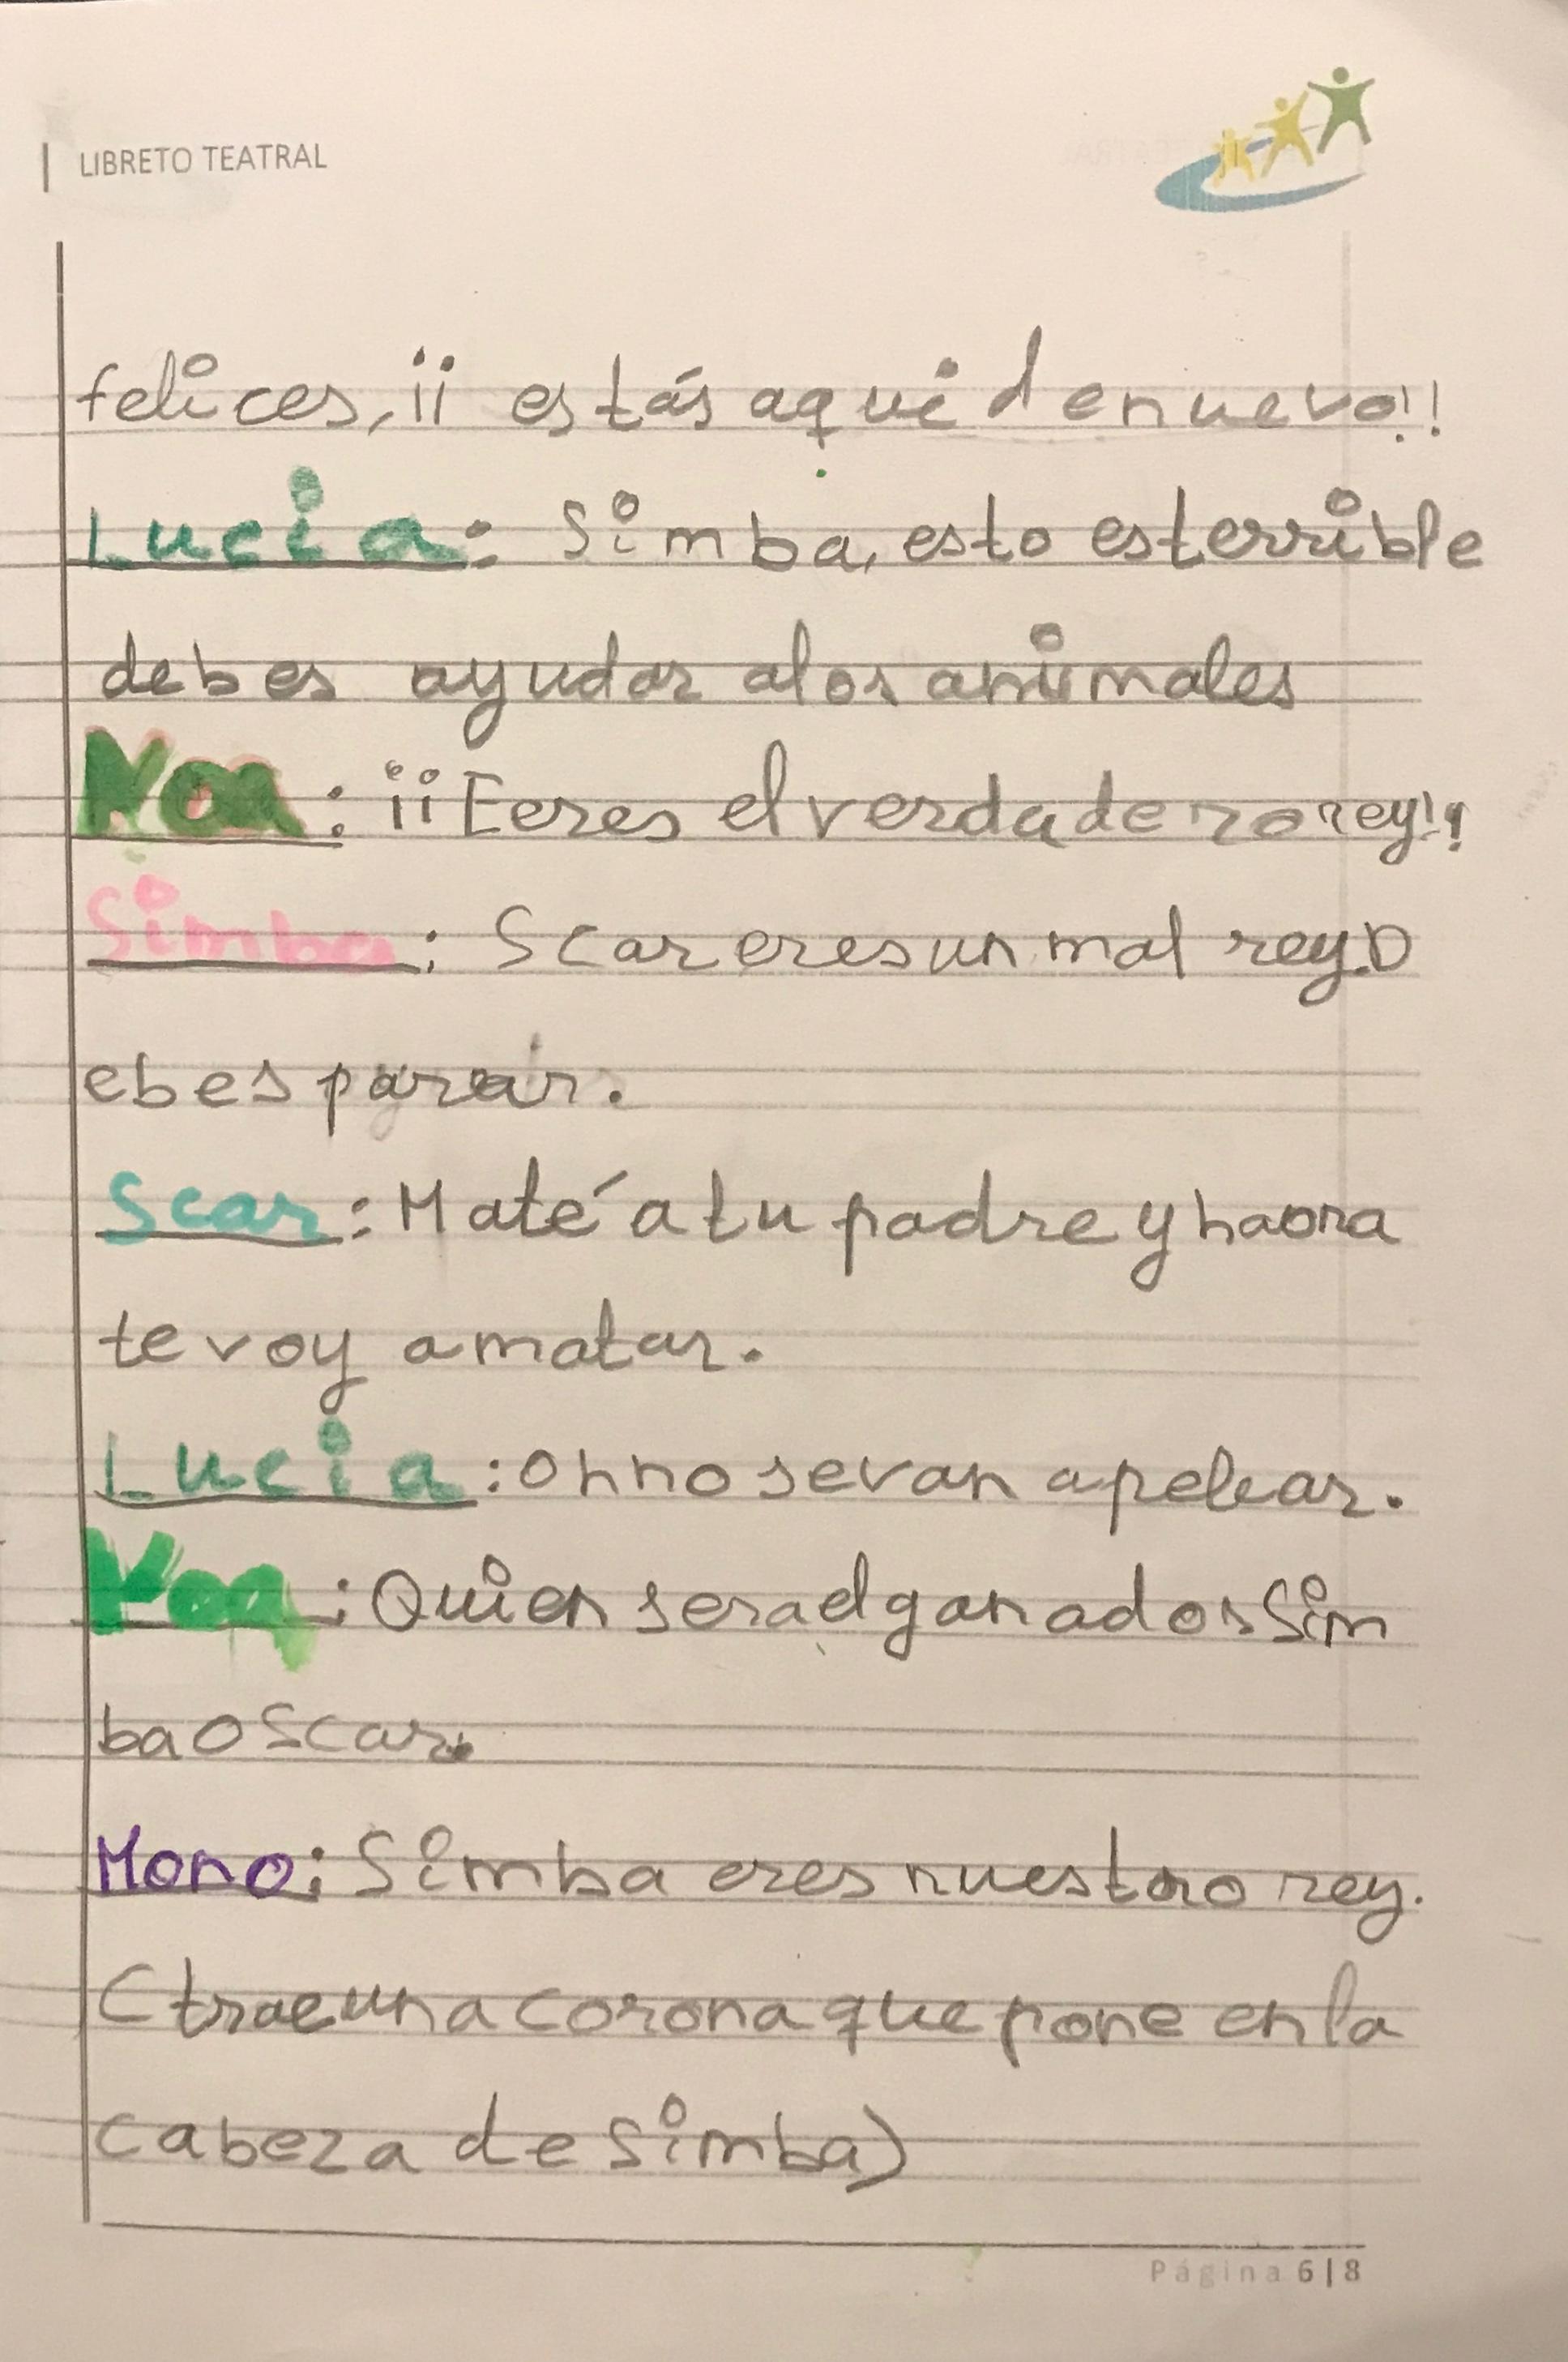 LIBRETO TEATRAL
felices, ¡¡ estás aqui de nuevo!!
Lucia: Simba, esto es terrible
debes ayudar a los animales
Noa: ¡¡Eeres el verdadero rey!!
Simba: Scar eres un mal rey. D
ebes parar.
Scar: Maté a tu padre y haora
te voy a matar.
Lucia: oh no se van a pelear.
Noa: Quien sera el ganados Sim
ba o Scar.
Mono: Simba eres nuestro rey.
(trae una corona que pone en la
cabeza de Simba)
Página 6|8